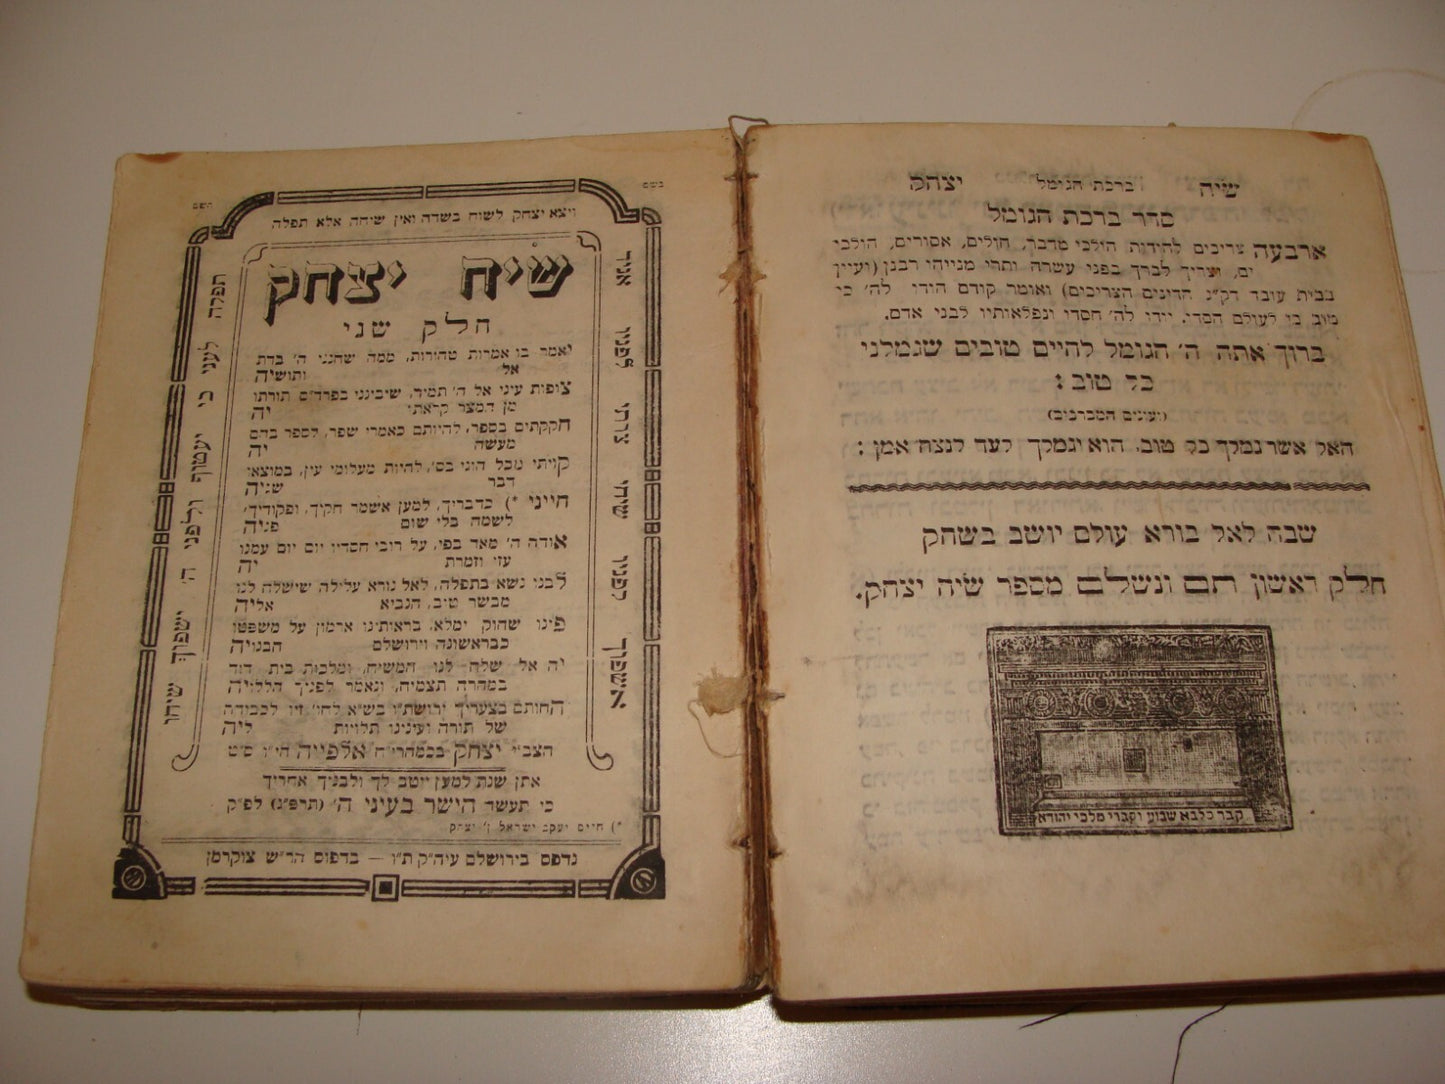 שיח ברכת הגומל יצחק
סדר ברכת הגומל
ארבעה צריכים להודות הולכי מדבר, חולים, אסורים, הולכי
ים, וצריך לברך בפני עשרה ותרי מנייהו רבנן (ועיין
בבית עובד דק״נ הדינים הצריכים) ואומר קודם הודו לה׳ כי
טוב כי לעולם חסדו. יודו לה׳ חסדו ונפלאותיו לבני אדם.
ברוך אתה ה׳ הגומל לחייבים טובים שגמלני
כל טוב :
(ועונים המברכים)
האל אשר גמלך כל טוב. הוא יגמלך לעד לנצח אמן :
שבח לאל בורא עולם יושב בשחק
חלק ראשון תם ונשלם מספר שיח יצחק.
קבר כלבא שבוע וקברי מלכי יהודא
בשם השם
ויצא יצחק לשוח בשדה ואין שיחה אלא תפלה
אגיד לפניו צרתי שיחי לפניו אשפוך
תפלה לעני כי יעטוף ולפני ה׳ ישפוך שיחו
שיח יצחק
חלק שני
יאמר בו אמרות טהורות, ממה שחנני ה׳ בדת
אל ותושיה
צופות עיני אל ה׳ תמיד, שיביננו בפרד״ס תורתו
מן המצר קראתי יה
חקקתים בספר, להיותם כאמרי שפר, לספר בהם
מעשה יה
קויתי מכל הוגי בם, להיות מעלומי עין, במוצאי
דבר שגיה
חייני *) כדבריך, למען אשמר חקיך, ופקודיך,
לשמה בלי שום פניה
אודה ה׳ מאד בפי, על רובי חסדיו יום יום עמנו
עזי וזמרת יה
לבני נשא בתפלה, לאל נורא עלילה שישלח לנו
מבשר טוב, הנביא אליה
פינו שחוק ימלא, בראותינו ארמון על משפטו
כבראשונה וירושלם הבנויה
יה אל שלח לנו המשיח, ומלכות בית דוד
במהרה תצמיח, ונאמר לפניך הללויה
החותם בצעריך ירושת״ו בש״א לחו׳ זיו לכבודה
של תורה ועינינו תלויות ליה
הצב״י יצחק בכמהרי״ח אלפייה הי״ו ס״ט
אתן שנת למען ייטב לך ולבניך אחריך
כי תעשה הישר בעיני ה׳ (תרפ״ג) לפ״ק
*) חיים יעקב ישראל ן׳ יצחק
נדפס בירושלם עיה״ק ת״ו — בדפוס הר״ש צוקרמן